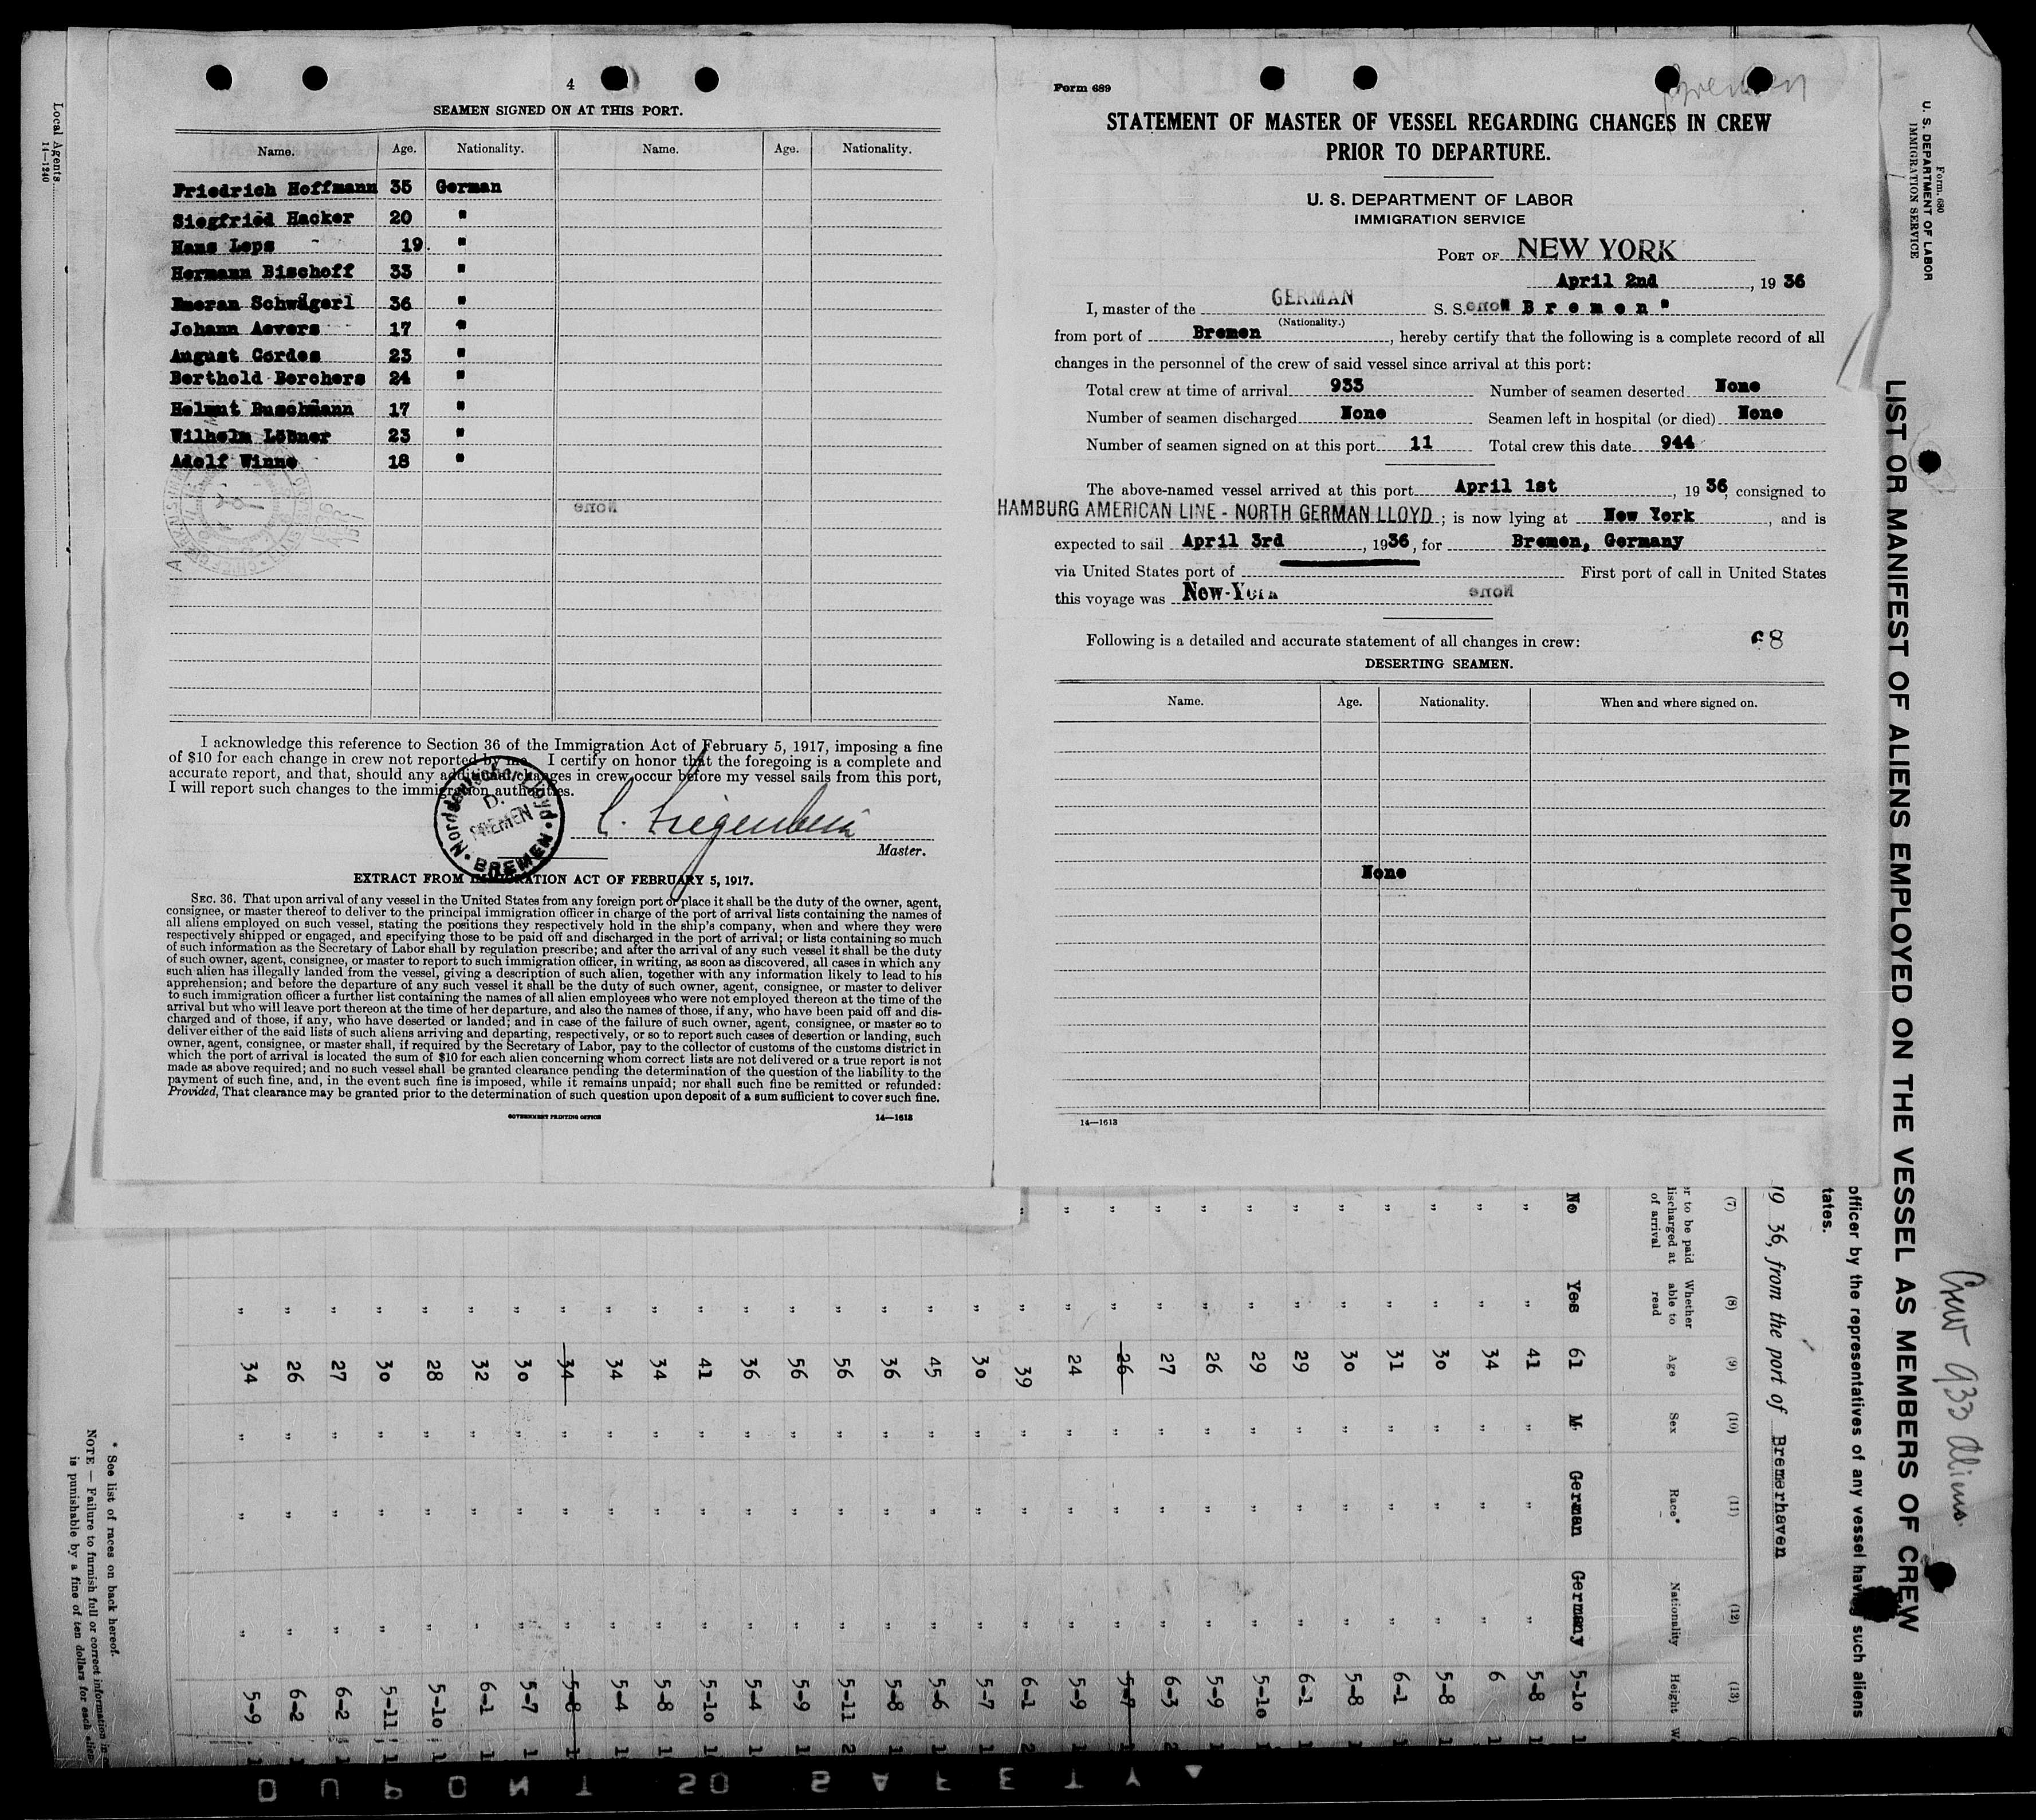 4
SEAMEN SIGNED ON AT THIS PORT.
Name. Age. Nationality. Name. Age. Nationality.
Friedrich Hoffmann 35 German
Siegfried Hacker 20 "
Hans Leps 19 "
Hermann Bischoff 33 "
Emeran Schwägerl 36 "
Johann Aevers 17 "
August Cordes 23 "
Berthold Borchers 24 "
Helmut Buschmann 17 "
Wilhelm Lößner 23 "
Adolf Winne 18 "
None
I acknowledge this reference to Section 36 of the Immigration Act of February 5, 1917, imposing a fine
of $10 for each change in crew not reported by me. I certify on honor that the foregoing is a complete and
accurate report, and that, should any additional changes in crew occur before my vessel sails from this port,
I will report such changes to the immigration authorities.
Norddeutscher Lloyd BREMEN
D. BREMEN
Master.
EXTRACT FROM IMMIGRATION ACT OF FEBRUARY 5, 1917.
SEC. 36. That upon arrival of any vessel in the United States from any foreign port or place it shall be the duty of the owner, agent,
consignee, or master thereof to deliver to the principal immigration officer in charge of the port of arrival lists containing the names of
all aliens employed on such vessel, stating the positions they respectively hold in the ship's company, when and where they were
respectively shipped or engaged, and specifying those to be paid off and discharged in the port of arrival; or lists containing so much
of such information as the Secretary of Labor shall by regulation prescribe; and after the arrival of any such vessel it shall be the duty
of such owner, agent, consignee, or master to report to such immigration officer, in writing, as soon as discovered, all cases in which any
such alien has illegally landed from the vessel, giving a description of such alien, together with any information likely to lead to his
apprehension; and before the departure of any such vessel it shall be the duty of such owner, agent, consignee, or master to deliver
to such immigration officer a further list containing the names of all alien employees who were not employed thereon at the time of the
arrival but who will leave port thereon at the time of her departure, and also the names of those, if any, who have been paid off and dis-
charged and of those, if any, who have deserted or landed; and in case of the failure of such owner, agent, consignee, or master so to
deliver either of the said lists of such aliens arriving and departing, respectively, or so to report such cases of desertion or landing, such
owner, agent, consignee, or master shall, if required by the Secretary of Labor, pay to the collector of customs of the customs district in
which the port of arrival is located the sum of $10 for each alien concerning whom correct lists are not delivered or a true report is not
made as above required; and no such vessel shall be granted clearance pending the determination of the question of the liability to the
payment of such fine, and, in the event such fine is imposed, while it remains unpaid; nor shall such fine be remitted or refunded:
Provided, That clearance may be granted prior to the determination of such question upon deposit of a sum sufficient to cover such fine.
GOVERNMENT PRINTING OFFICE 14—1613
Form 689
Bremen
STATEMENT OF MASTER OF VESSEL REGARDING CHANGES IN CREW
PRIOR TO DEPARTURE.
U. S. DEPARTMENT OF LABOR
IMMIGRATION SERVICE
PORT OF NEW YORK
April 2nd, 1936
I, master of the GERMAN S. S. "Bremen"
(Nationality.)
from port of Bremen, hereby certify that the following is a complete record of all
changes in the personnel of the crew of said vessel since arrival at this port:
Total crew at time of arrival 933 Number of seamen deserted None
Number of seamen discharged None Seamen left in hospital (or died) None
Number of seamen signed on at this port 11 Total crew this date 944
The above-named vessel arrived at this port April 1st, 1936, consigned to
HAMBURG AMERICAN LINE - NORTH GERMAN LLOYD; is now lying at New York, and is
expected to sail April 3rd, 1936, for Bremen, Germany
via United States port of First port of call in United States
this voyage was New-York None
Following is a detailed and accurate statement of all changes in crew: 68
DESERTING SEAMEN.
Name. Age. Nationality. When and where signed on.
None
14—1613
Local Agents
14—1240
Form 680
U. S. DEPARTMENT OF LABOR
IMMIGRATION SERVICE
LIST OR MANIFEST OF ALIENS EMPLOYED ON THE VESSEL AS MEMBERS OF CREW
Crew 933 aliens
officer by the representatives of any vessel having such aliens
tates.
19 36, from the port of Bremerhaven
(7) (8) (9) (10) (11) (12) (13)
er to be paid
discharged at
of arrival
Whether
able to
read
Age
Sex
Race*
Nationality
Height
No Yes 61 M German Germany 5-10
" " 41 " " " 5-8
" " 34 " " " 6
" " 30 " " " 5-8
" " 31 " " " 6-1
" " 30 " " " 5-8
" " 29 " " " 6-1
" " 29 " " " 5-10
" " 26 " " " 5-9
" " 27 " " " 6-3
" " 26 " " " 5-7
" " 24 " " " 5-9
" " 39 " " " 6-1
" 30 " " " 5-7
" 45 " " " 5-6
" 36 " " " 5-8
" 56 " " " 5-11
" 56 " " " 5-9
" 36 " " " 5-4
" 41 " " " 5-10
" 34 " " " 5-8
" 34 " " " 5-4
" 34 " " " 5-8
" 30 " " " 5-7
" 32 " " " 6-1
" 28 " " " 5-10
" 30 " " " 5-11
" 27 " " " 6-2
" 26 " " " 6-2
" 34 " " " 5-9
* See list of races on back hereof.
NOTE — Failure to furnish full or correct information in
is punishable by a fine of ten dollars for each alien
DUPONT SO SAFETY